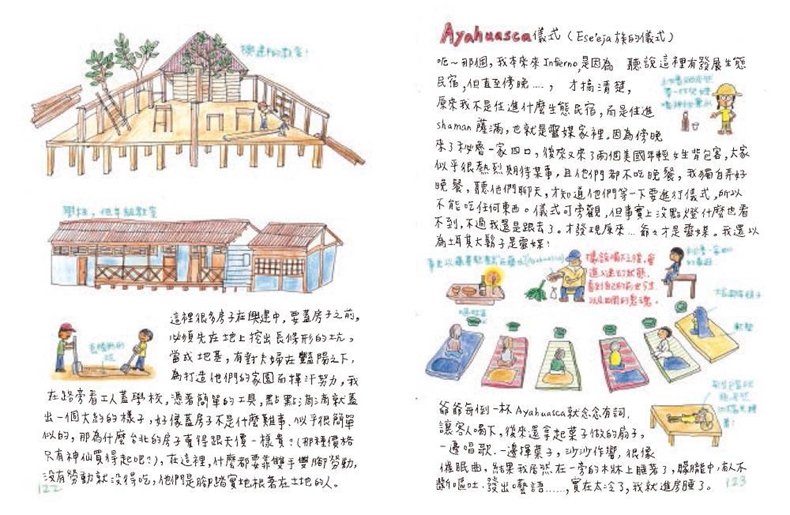 興建中的教室!
學校,低年級教室
這裡很多房子在興建中,要蓋房子之前,
必須先在地上挖出長條形的坑,
當成地基,有對夫婦在豔陽之下,
為打造他們的家園而揮汗努力,我
在路旁看工人蓋學校,憑著簡單的工具,點點滴滴就蓋
出一個大約的樣子,好像蓋房子不是什麼難事、似乎很簡單
似的,那為什麼台北的房子賣得跟天價一樣貴?(那種價格
只有神仙買得起吧?),在這裡,什麼都要靠雙手雙腳勞動,
沒有勞動就沒得吃,他們是腳踏實地根著在土地的人。
122
Ayahuasca儀式(Ese'eja族的儀式)
呃~那個,我本來來Infierno,是因為 聽說這裡有發展生態
民宿,但直至傍晚...., 才搞清楚,
原來我不是住進什麼生態民宿,而是住進
shaman薩滿,也就是靈媒家裡。因為傍晚
來了秘魯一家四口,後來又來了兩個美國年輕女生背包客,大家
似乎很熱烈期待某事,且他們都不吃晚餐,我獨自弄好
晚餐,聽他們聊天,才知道他們等一下要進行儀式,所以
不能吃任何東西。儀式可旁觀,但事實上沒點燈什麼也看
不到,不過我還是跟去了。才發現原來...爺爺才是靈媒。我還以
為土耳其大鬍子是靈媒!
爺爺每倒一杯Ayahuasca就念念有詞,
讓客人喝下,後來還拿起葉子做的扇子,
一邊唱歌、一邊揮葉子,沙沙作響,很像
催眠曲,結果我居然在一旁的木床上睡著了,朦朧中,有人不
斷嘔吐、發出囈語......,實在太冷了,我就進房睡了。
123